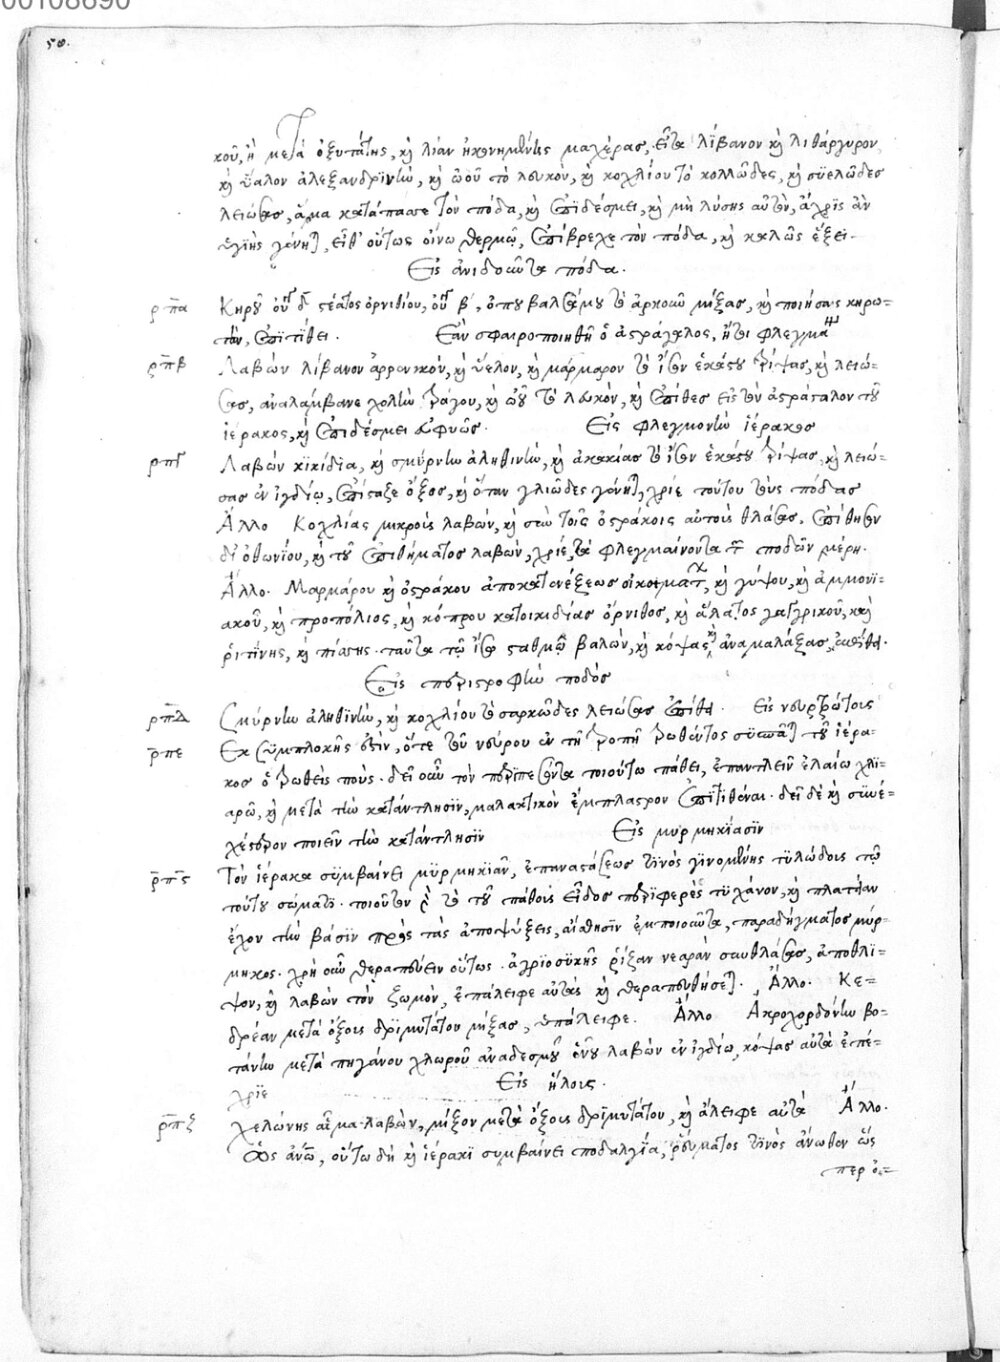 00108690
50.
κοῦ, ἢ μετὰ ὀξυτάτης, καὶ λίαν ἠκονημένης μαχέρας, εἶτα λίβανον καὶ λιθάργυρον,
καὶ ὕαλον ἀλεξανδρϊνὴν, καὶ ὠοῦ τὸ λευκὸν, καὶ κοχλίου τὸ κολλῶδες, καὶ σϋελῶδες
λειώσας, ἅμα κατάπασσε τὸν πόδα, καὶ ἐπιδέσμει, καὶ μὴ λύσης αὐτὸν, ἄχρϊς ἂν
ὑγιὴς γένηται, εἶθ' οὕτως οἴνω θερμῷ, ἐπίβρεχε τὸν πόδα, καὶ καλῶς ἕξει.
Εἰς ἀνιδοῦντα πόδα.
ρπα Κηροῦ οὐγ δ στέατος ὀρνιθίου, οὐγ β', ὀποῦ βαλσάμου τὸ ἀρκοῦν μίξας, καὶ ποιήσας κηρω=
τὸν, ἐπιτίθει. Ἐὰν σφαιροποιηθῆ ὁ ἀστράγαλος, ἤτοι φλεγμάνη
ρπβ Λαβὼν λίβανον ἀρρενικὸν, καὶ ὕελον, καὶ μάρμαρον τὸ ἴσον ἑκάστου τρίψας, καὶ λειώ=
σας, ἀναλάμβανε χολὴν τράγου, καὶ ὠοῦ τὸ λευκὸν, καὶ ἐπίθες εἰς τὸν ἀστράγαλον τοῦ
ἱέρακος, καὶ ἐπιδέσμει εὐφυῶς. Εἰς φλεγμονὴν ἱέρακος
ρπγ Λαβὼν κϊκίδια, καὶ σμύρνην ἀληθινὴν, καὶ ἀκακίας τὸ ἴσον ἑκάστου τρίψας, καὶ λειώ=
σας ἐν ἰγδίῳ, ἐπίσταξε ὄξος, καὶ ὅταν γλιῶδες γένηται, χρίε τούτου τοὺς πόδας
Ἄλλο Κοχλίας μικροὺς λαβὼν, καὶ σὺν τοῖς ὀστράκοις αὐτοὺς θλάσας, ἐπίθησον
δι' ὀθωνίου, καὶ τοῦ ἐπιθήματος λαβὼν, χρίε, τὰ φλεγμαίνοντα τῶν ποδῶν μέρη.
Ἄλλο. Μαρμάρου καὶ ὀστράκου ἀποκατονέξεως οἰκοιματ, καὶ γύψου, καὶ ἀμμονϊ=
ακοῦ, καὶ προπόλιος, καὶ κόπρου κατοικιδίας ὄρνιθος, καὶ ἅλατος καὶ
ῥιτίνης, καὶ πίσσης. ταῦτα τῷ ἴσῳ σταθμῷ βαλὼν, καὶ κόψας, καὶ ἀναμαλάξας, ἐπίθες.
Εἰς περιστροφὴν ποδὸς
ρπδ Σμύρνην ἀληθϊνὴν, καὶ κοχλίου τὸ σαρκῶδες λειώσας ἐπίθες. Εἰς νευροτρώτοις
ρπε Ἐκ συμπλοκῆς ἐστὶν, ὅτε τοῦ νεύρου ἐν τῇ τροπῇ τρωθέντος σϋσπᾶται τοῦ ἱέρα=
κος ὁ τρωθεὶς ποὺς. δεῖ οὖν τὸν περϊπεσόντα τοιούτω πάθει, ἐπαντλεῖν ἐλαίω χλϊ=
αρῷ, καὶ μετὰ τὴν κατάντλησϊν, μαλακτικὸν ἔμπλαστρον ἐπιτιθέναι. δεῖ δὲ καὶ σϋνε=
χέστερον ποιεῖν τὴν κατάντλησϊν Εἰς μυρμηκίασϊν
ρπς Τὸν ἱέρακα σϋμβαίνει μϋρμηκϊᾶν, ἐπαναστάσεως τϊνὸς γϊνομένης τϋλώδους τῷ
τούτου σώματι. τοιοῦτον ἐστὶ τὸ τοῦ πάθους εἶδος περϊφερὲς τϋγχάνον, καὶ πλατεῖαν
ἔχον τὴν βάσϊν πρὸς τὰς ἀποψύξεις, αἴσθησϊν ἐμποιοῦντα, παραδήγματος μύρ=
μηκος. χρὴ οὖν θεραπεύειν οὕτως. ἀγρϊοσϋκῆς ῥίζαν νεαρὰν συνθλάσας, ἀποθλι=
ψον, καὶ λαβὼν τὸν ζωμὸν, ἐπάλειφε αὐτὰς καὶ θεραπευθήσεται. Ἄλλο. Κε=
δρέαν μετὰ ὄξους δρϊμυτάτου μίξας, ὑπάλειφε. Ἄλλο Ἀκροχορδόνην βο=
τάνην μετὰ πηγάνου χλωροῦ ἀναδεσμοῦ ἑνὸς λαβὼν ἐν ἰγδίω, κόψας αὐτὰ ἐπέ=
χρϊε Εἰς ἥλους.
ρπζ χελώνης αἷμα λαβὼν, μίξον μετὰ ὄξους δριμυτάτου, καὶ ἄλειφε αὐτὰ Ἄλλο.
Ὡς ἀνω, οὕτω δὴ καὶ ἱέρακϊ συμβαίνει ποδαλγία, ῥεύματος τϊνὸς ἄνωθεν ὥς
περ ὀ=